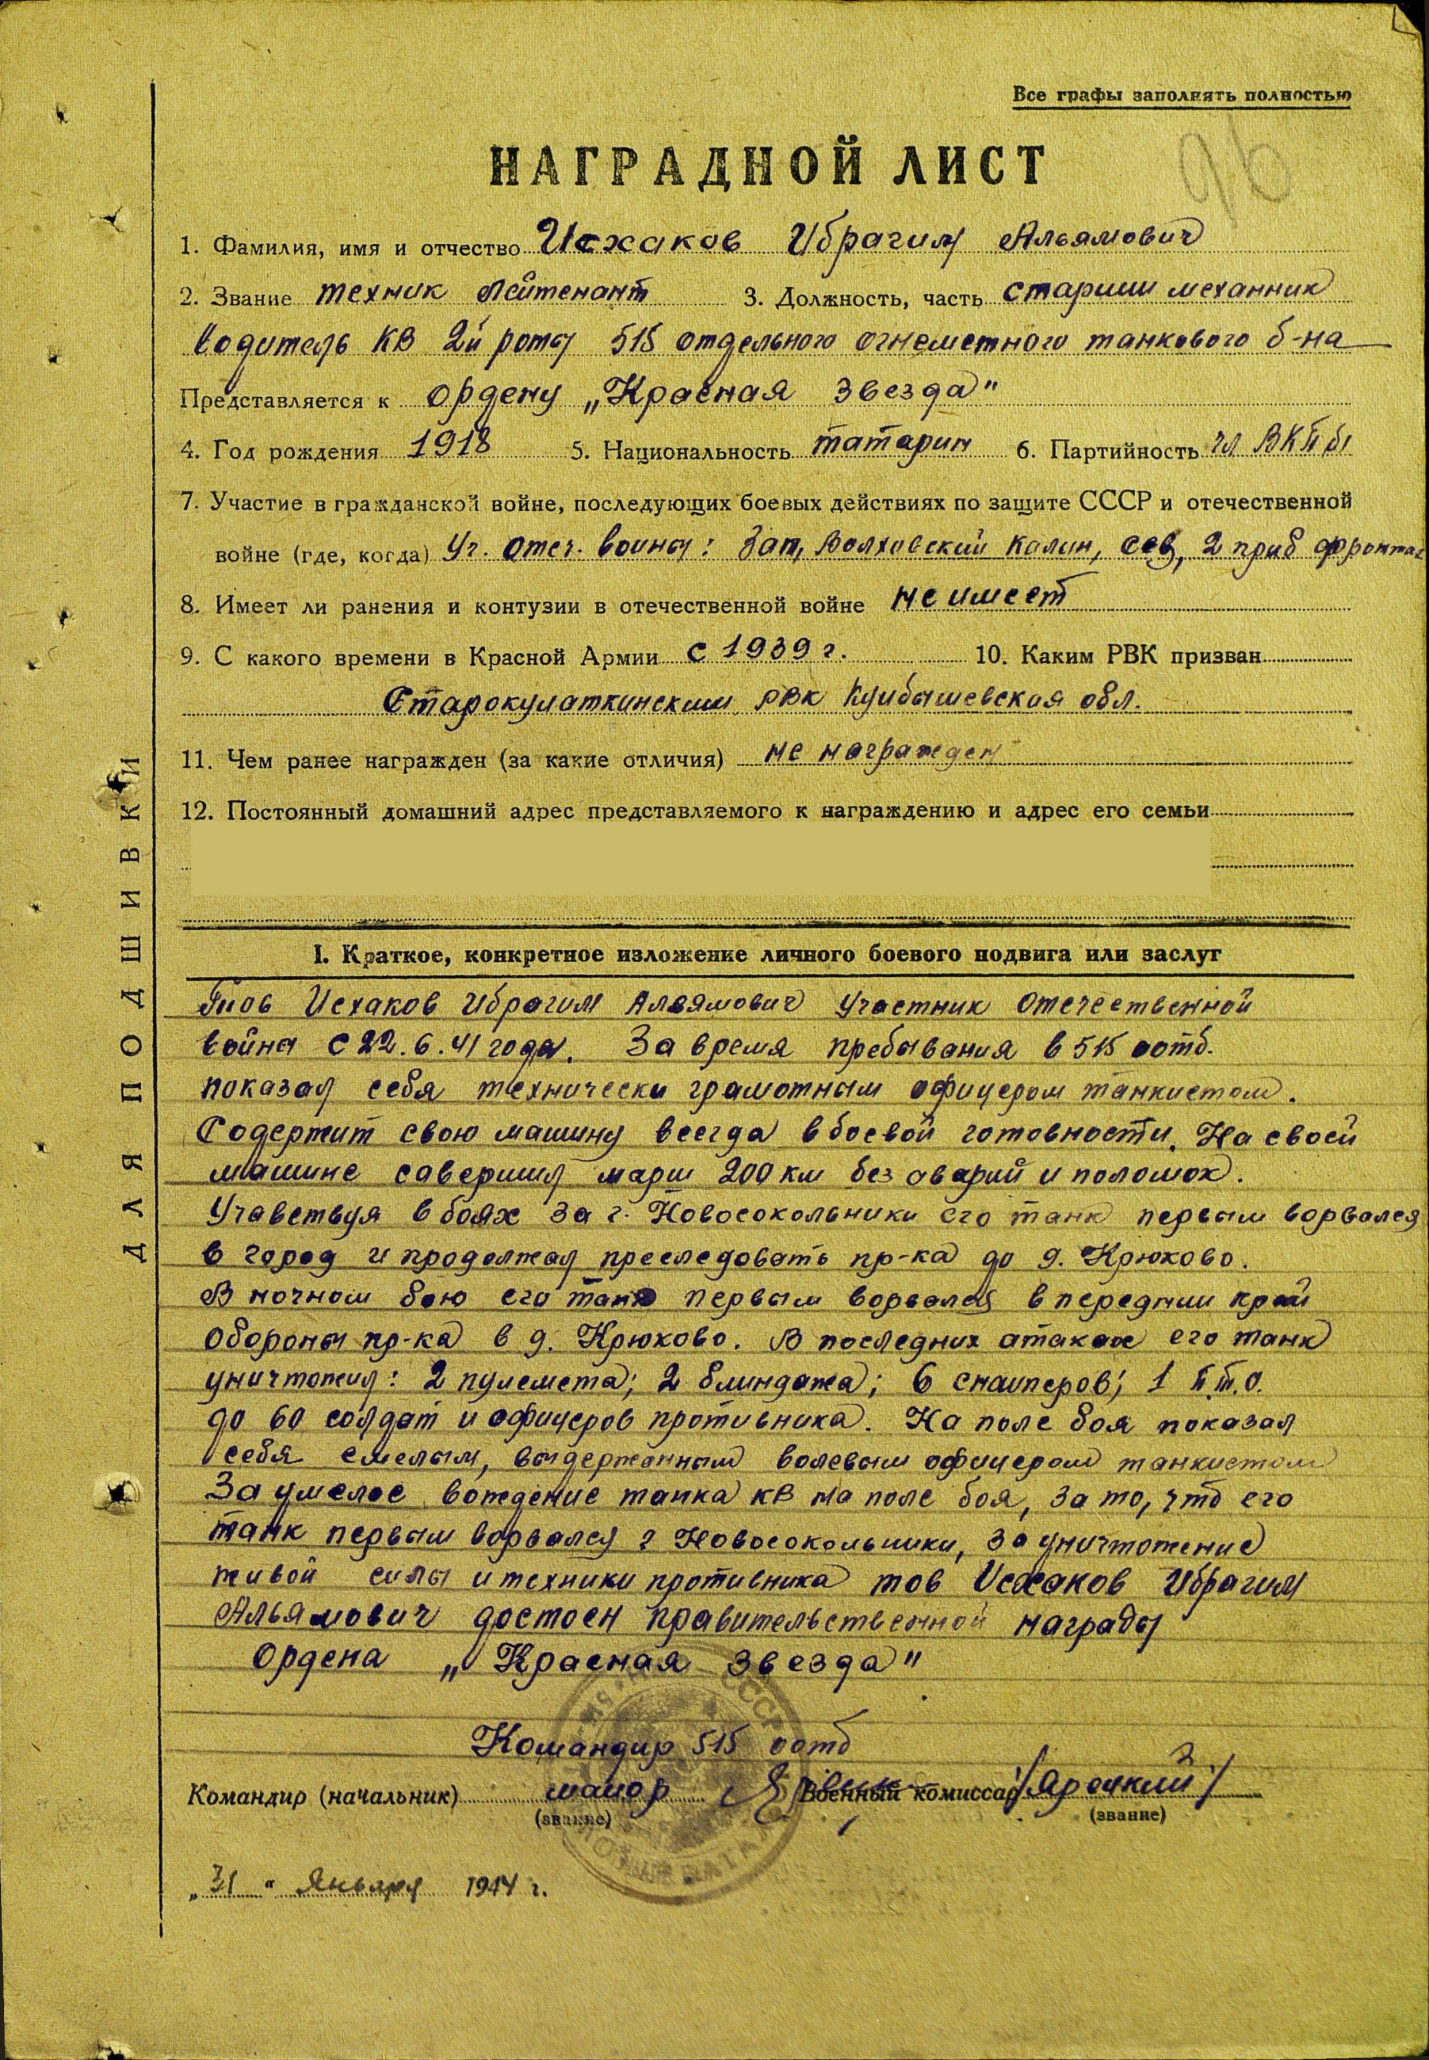 Все графы заполнять полностью
96
НАГРАДНОЙ ЛИСТ
1. Фамилия, имя и отчество Исхаков Ибрагим Альямович
2. Звание техник лейтенант 3. Должность, часть старший механник
водитель КВ 2й роты 515 отдельного огнеметного танкового б-на
Представляется к ордену „Красная Звезда"
4. Год рождения 1918 5. Национальность татарин 6. Партийность чл ВКП б
7. Участие в гражданской войне, последующих боевых действиях по защите СССР и отечественной
войне (где, когда) Уч. отеч. войны: Зап, Волховский Калин, сев, 2 приб фронтах
8. Имеет ли ранения и контузии в отечественной войне не имеет
9. С какого времени в Красной Армии с 1939 г. 10. Каким РВК призван
Старокулаткинским РВК Куйбышевская обл.
11. Чем ранее награжден (за какие отличия) не награжден
12. Постоянный домашний адрес представляемого к награждению и адрес его семьи
I. Краткое, конкретное изложение личного боевого подвига или заслуг
Тов Исхаков Ибрагим Альямович участник Отечественной
войны с 22.6.41 года. За время пребывания в 515 оотб.
показал себя технически грамотным офицером танкистом.
Содержит свою машину всегда в боевой готовности. На своей
машине совершил марш 200 км без аварий и поломок.
Учавствуя в боях за г. Новосокольники его танк первым ворвался
в город и продолжал преследовать пр-ка до д. Крюково.
В ночном бою его танк первым ворвался в передний край
обороны пр-ка в д. Крюково. В последних атаках его танк
уничтожил: 2 пулемета; 2 блиндажа; 6 снайперов; 1 П.Т.О.
до 60 солдат и офицеров противника. На поле боя показал
себя смелым, выдержанным волевым офицером танкистом
За умелое вождение танка КВ на поле боя, за то, что его
танк первым ворвался г Новосокольники, за уничтожение
живой силы и техники противника тов Исхаков Ибрагим
Альямович достоен правительственной награды
Ордена „Красная Звезда"
Командир 515 оотб
Командир (начальник) майор Военный комиссар /Яроцкий/
(звание) (звание)
„31" Января 1944 г.
ДЛЯ ПОДШИВКИ